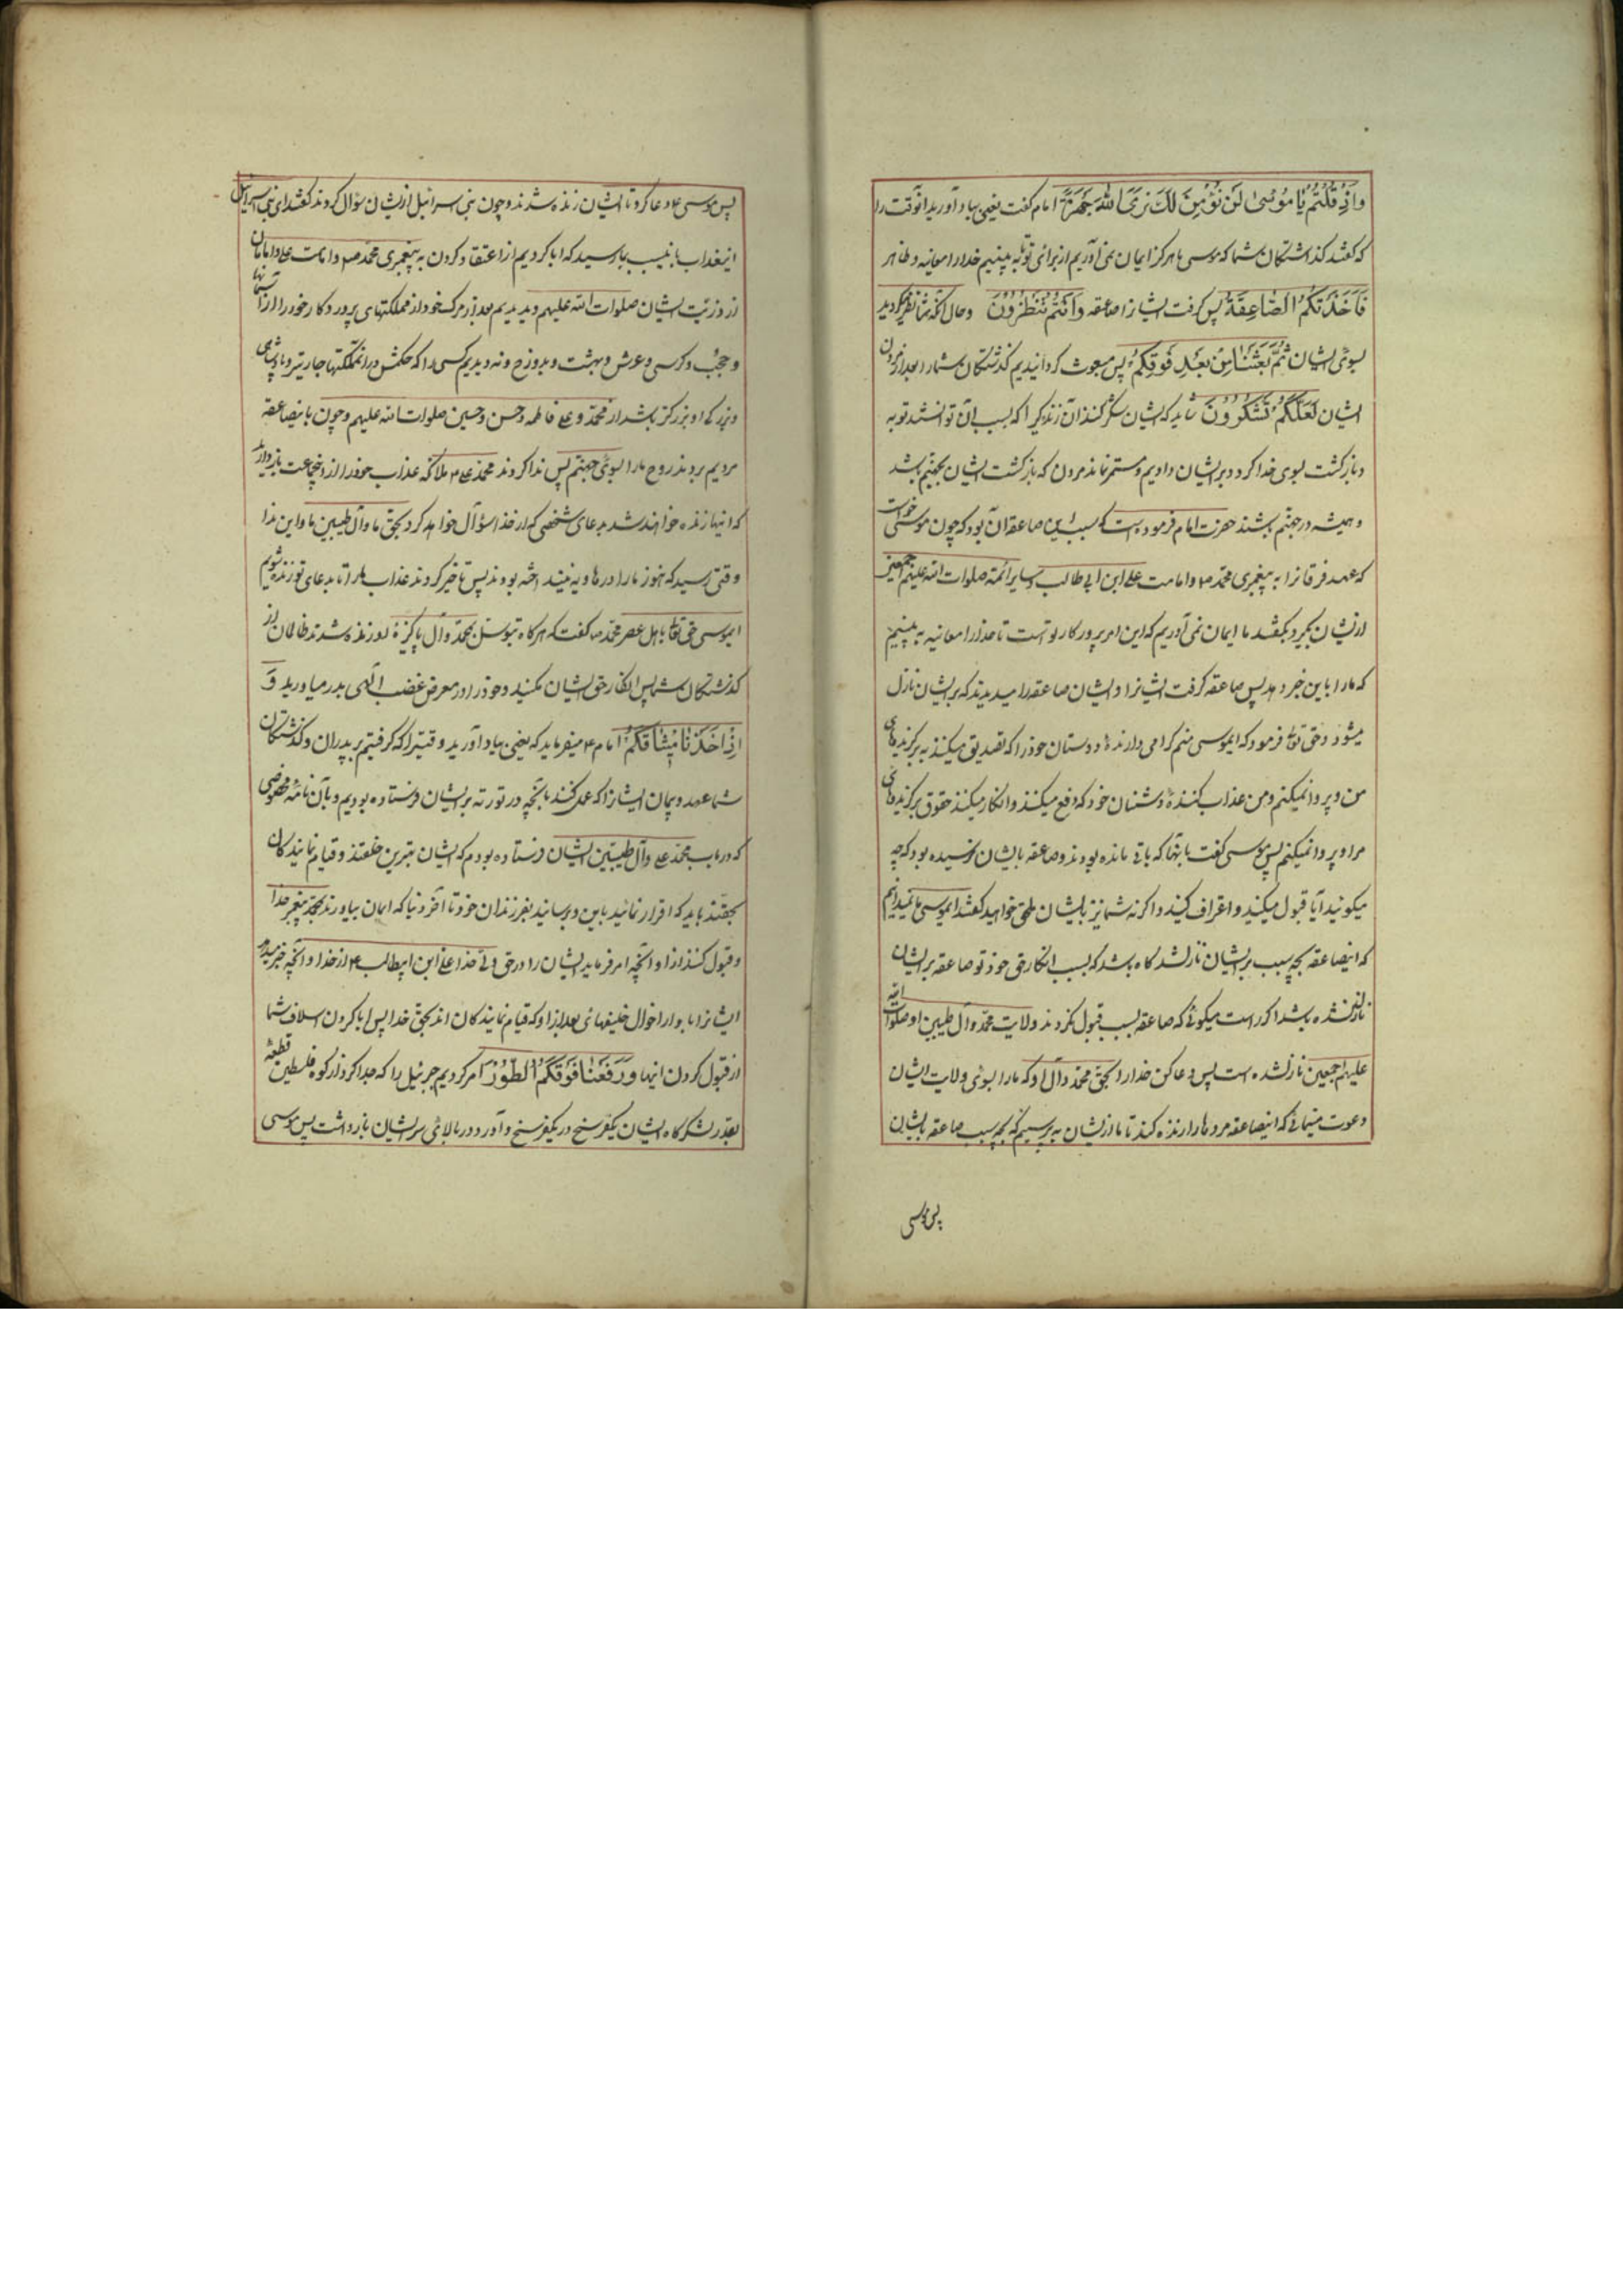 واذ قلتم یا موسی لن نؤمن لك نری الله جهرة امام کفت یعنی بیاد آورید آنوقت را
که کفتند کذشتکان شما که موسی ما هرکز ایمان نمی آوریم از برای تو تا به بینیم خدا را معاینه و ظاهر
فاخذتکم الصاعقة پس کرفت ایشانرا صاعقه وانتم تنظرون وحال آنکه شما نظر میکردید
بسوی ایشان ثم بعثناکم من بعد فوقکم پس مبعوث کردانیدیم کذشتکان شما را بعد از مردن
ایشان لعلکم تشکرون شاید که ایشان شکر کنند آن زندکی را که بسبب آن توانستند توبه
و بازکشت بسوی خدا کرد و بر ایشان دادیم و مستمر نماند مردن که بازکشت ایشان بجهنم باشد
و همیشه در جهنم باشند حضرت امام فرموده است که سبب این صاعقه آن بود که چون موسی خواست
که عهد فرقانرا به پیغمبری محمد ص و امامت علی ابن ابی طالب و سایر ائمه صلوات الله علیهم اجمعین
از ایشان بکیرد بکفتند ما ایمان نمی آوریم که این امر پرورکار تو است تا خدا را معاینه به بینیم
که ما را باین خبر دهد پس صاعقه کرفت ایشانرا و ایشان صاعقه را میدیدند که بر ایشان نازل
میشود و حق تعالی فرمود که ایموسی منم کرامی دارندهٔ دوستان خود را که تصدیق میکنند به برکزیدهای
من و پروا نمیکنم و من عذاب کنندهٔ دشمنان خود که دفع میکنند و انکار میکنند حقوق برکزیدهای
مرا و پروا نمیکنم پس موسی کفت بآنها که باقی مانده بودند و صاعقه بایشان نرسیده بود که چه
میکوئید آیا قبول میکنید و اعتراف کنید و اکر نه شما نیز بایشان ملحق خواهید کفتند ایموسی ما نمیدانیم
که اینصاعقه بچه سبب بر ایشان نازل شد کاه باشد که بسبب انکار حق خود تو صاعقه بر ایشان
نازل نشده باشد اکر راست میکوئی که صاعقه بسبب قبول نکردند ولایت محمد و آل طیبین او صلوات الله
علیهم اجمعین نازل شده است پس دعا کن خدا را بحق محمد و آل او که ما را بسوی ولایت ایشان
دعوت مینمائی که اینصاعقه مردها را زنده کند تا ما از ایشان بپرسیم که بچه سبب صاعقه بایشان
پس موسی
پس موسی ع دعا کرد تا ایشان زنده شدند و چون بنی اسرائیل از ایشان سؤال کردند کفتند ای بنی اسرائیل
اینعذاب باینسبب بما رسید که ابا کردیم از اعتقاد کردن به پیغمبری محمد ص و امامت علی و امامان
از ذریت ایشان صلوات الله علیهم و دیدیم بعد از مرک خود از مملکتهای پروردکار خود را از آسمانها
و حجب و کرسی و عرش و بهشت و دوزخ و ندیدیم کسی را که حکمش در انمملکتها جاریتر و پادشاهی
و بزرکی او بزرکتر باشد از محمد و علی فاطمه و حسن و حسین صلوات الله علیهم و چون باینصاعقه
مردیم بردند روح ما را بسوی جهنم پس ندا کردند محمد علی ع ملائکه عذاب خود را از اینجماعت بازدارید
که اینها زنده خواهند شد بدعای شخصی که از خدا سؤال خواهد کرد بحق ما و آل طیبین ما و این ندا
وقتی رسید که هنوز ما را در هاویه نینداخته بودند پس تأخیر کردند عذاب ما را تا بدعای تو زنده شویم
ایموسی حق تعالی باهل عصر محمد ص کفت که هرکاه بتوسل بمحمد و آل پاکیزهٔ او زنده شدند ظالمان از
کذشتکان شما پس انکار حق ایشان مکنید و خود را در معرض غضب الهی بدر میاورید و
اذ اخذنا میثاقکم امام ع میفرماید که یعنی بیاد آورید وقتیرا که کرفتیم بر پدران و کذشتکان
شما عهد و پیمان ایشانرا که عمل کنند بآنچه در تورته بر ایشان فرستاده بودیم و بآن نامهٔ مخصوصی
که در باب محمد علی و آل طیبین ایشان فرستاده بودم که ایشان بهترین خلقند و قیام نمایندکان
بحقند باید که اقرار نمائید باین و برسانید بفرزندان خود تا آخر دنیا که ایمان بیاورند بمحمد پیغمبر خدا
و قبول کنند از او آنچه امر فرماید ایشان را در حق ولی خدا علی ابن ابیطالب ع از خدا و آنچه خبر میدهد
ایشانرا باو از احوال خلیفهای بعد از او که قیام نمایندکان اند بحق خدا پس ابا کردن اسلاف شما
از قبول کردن اینها ورفعنا فوقکم الطور امر کردیم جبرئیل را که جدا کرد از کوه فلسطین قطعهٔ
بقدر لشکرکاه ایشان یکفرسخ در یکفرسخ و آورد و در بالای سر ایشان بازداشت پس موسی